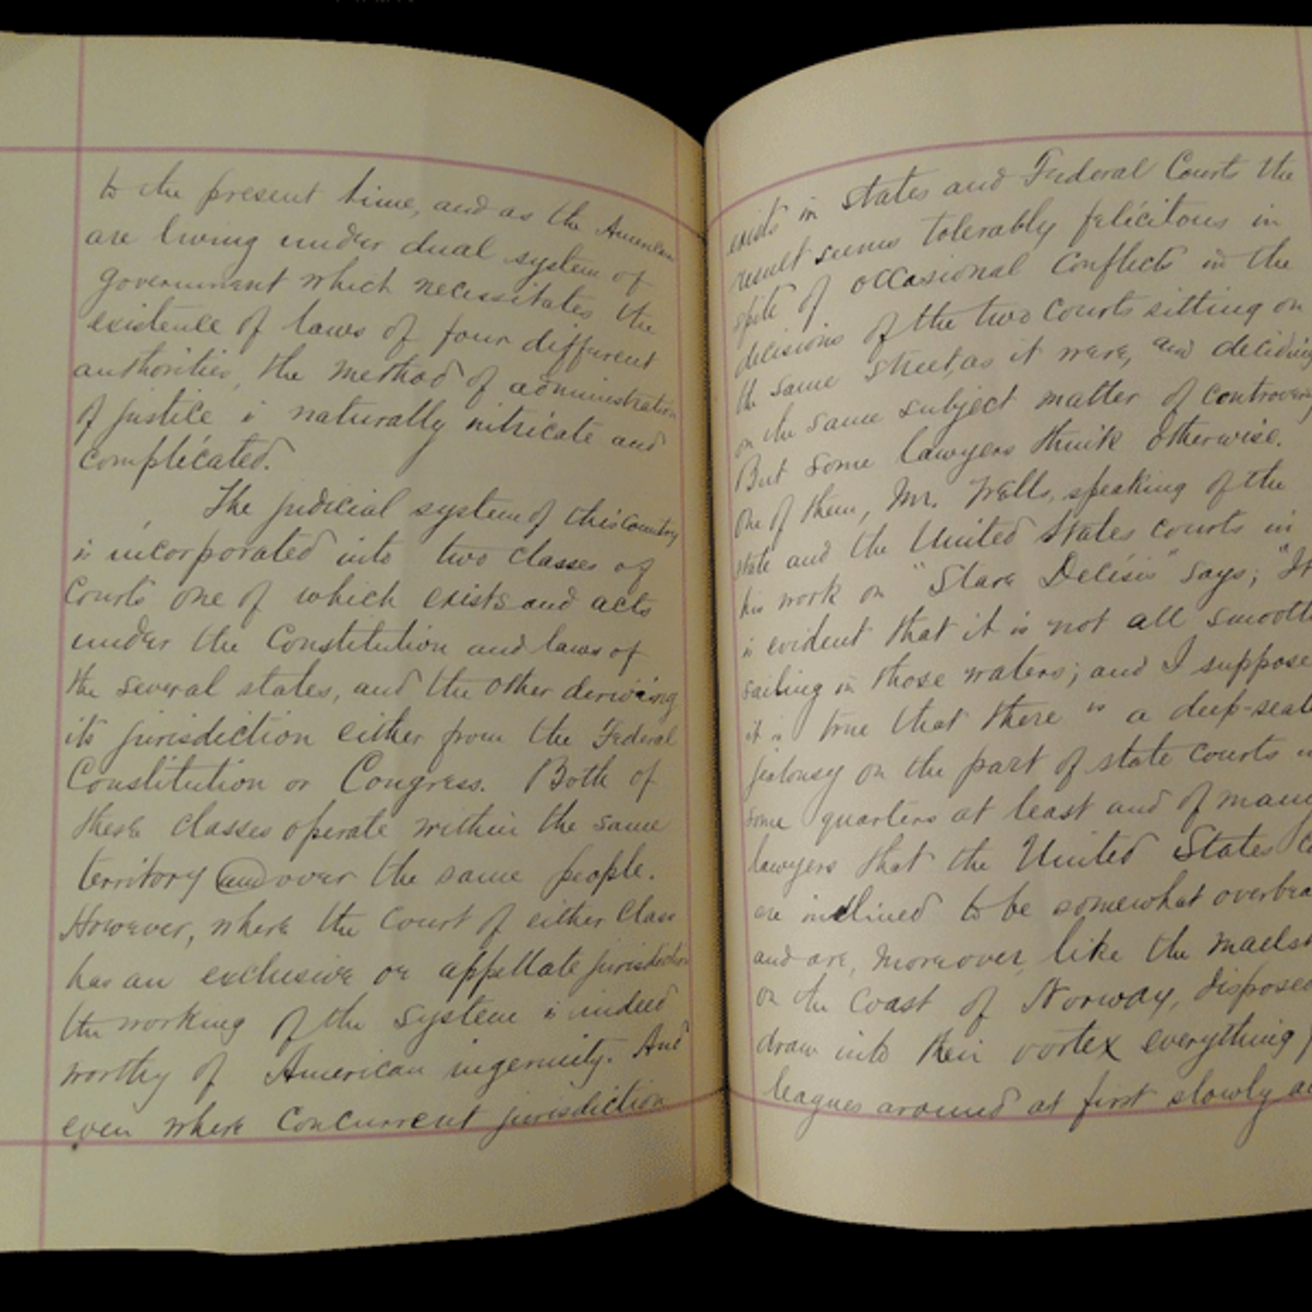 to the present time, and as the American
are living under dual system of
government which necessitates the
existence of laws of four different
authorities, the method of administration
of justice is naturally nitricate and
complicated.
The judicial system of this Country
is incorporated into two classes of
Courts one of which exists and acts
under the Constitution and laws of
the several states, and the other deriving
its jurisdiction either from the Federal
Constitution or Congress. Both of
these classes operate within the same
territory and over the same people.
However, where the Court of either Class
has an exclusive or appellate jurisdiction
the working of the System is indeed
worthy of American ingenuity. And
even where Concurrent jurisdiction
exists in States and Federal Courts the
result seems tolerably felicitous in
spite of occasional Conflicts in the
decisions of the two Courts sitting on
the same street, as it were, and deciding
on the same subject matter of controversy
But some lawyers think otherwise.
One of them, Mr. Wells, speaking of the
state and the United States courts in
his work on "Stare Decisis" says; "It
is evident that it is not all smooth
sailing in those waters; and I suppose
it is true that there is a deep-seat
jealousy on the part of state courts in
some quarters at least and of many
lawyers that the United States Co
are inclined to be somewhat overbea
and are, moreover, like the maelst
on the Coast of Norway, disposed
draw into their vortex everything f
leagues around at first slowly a